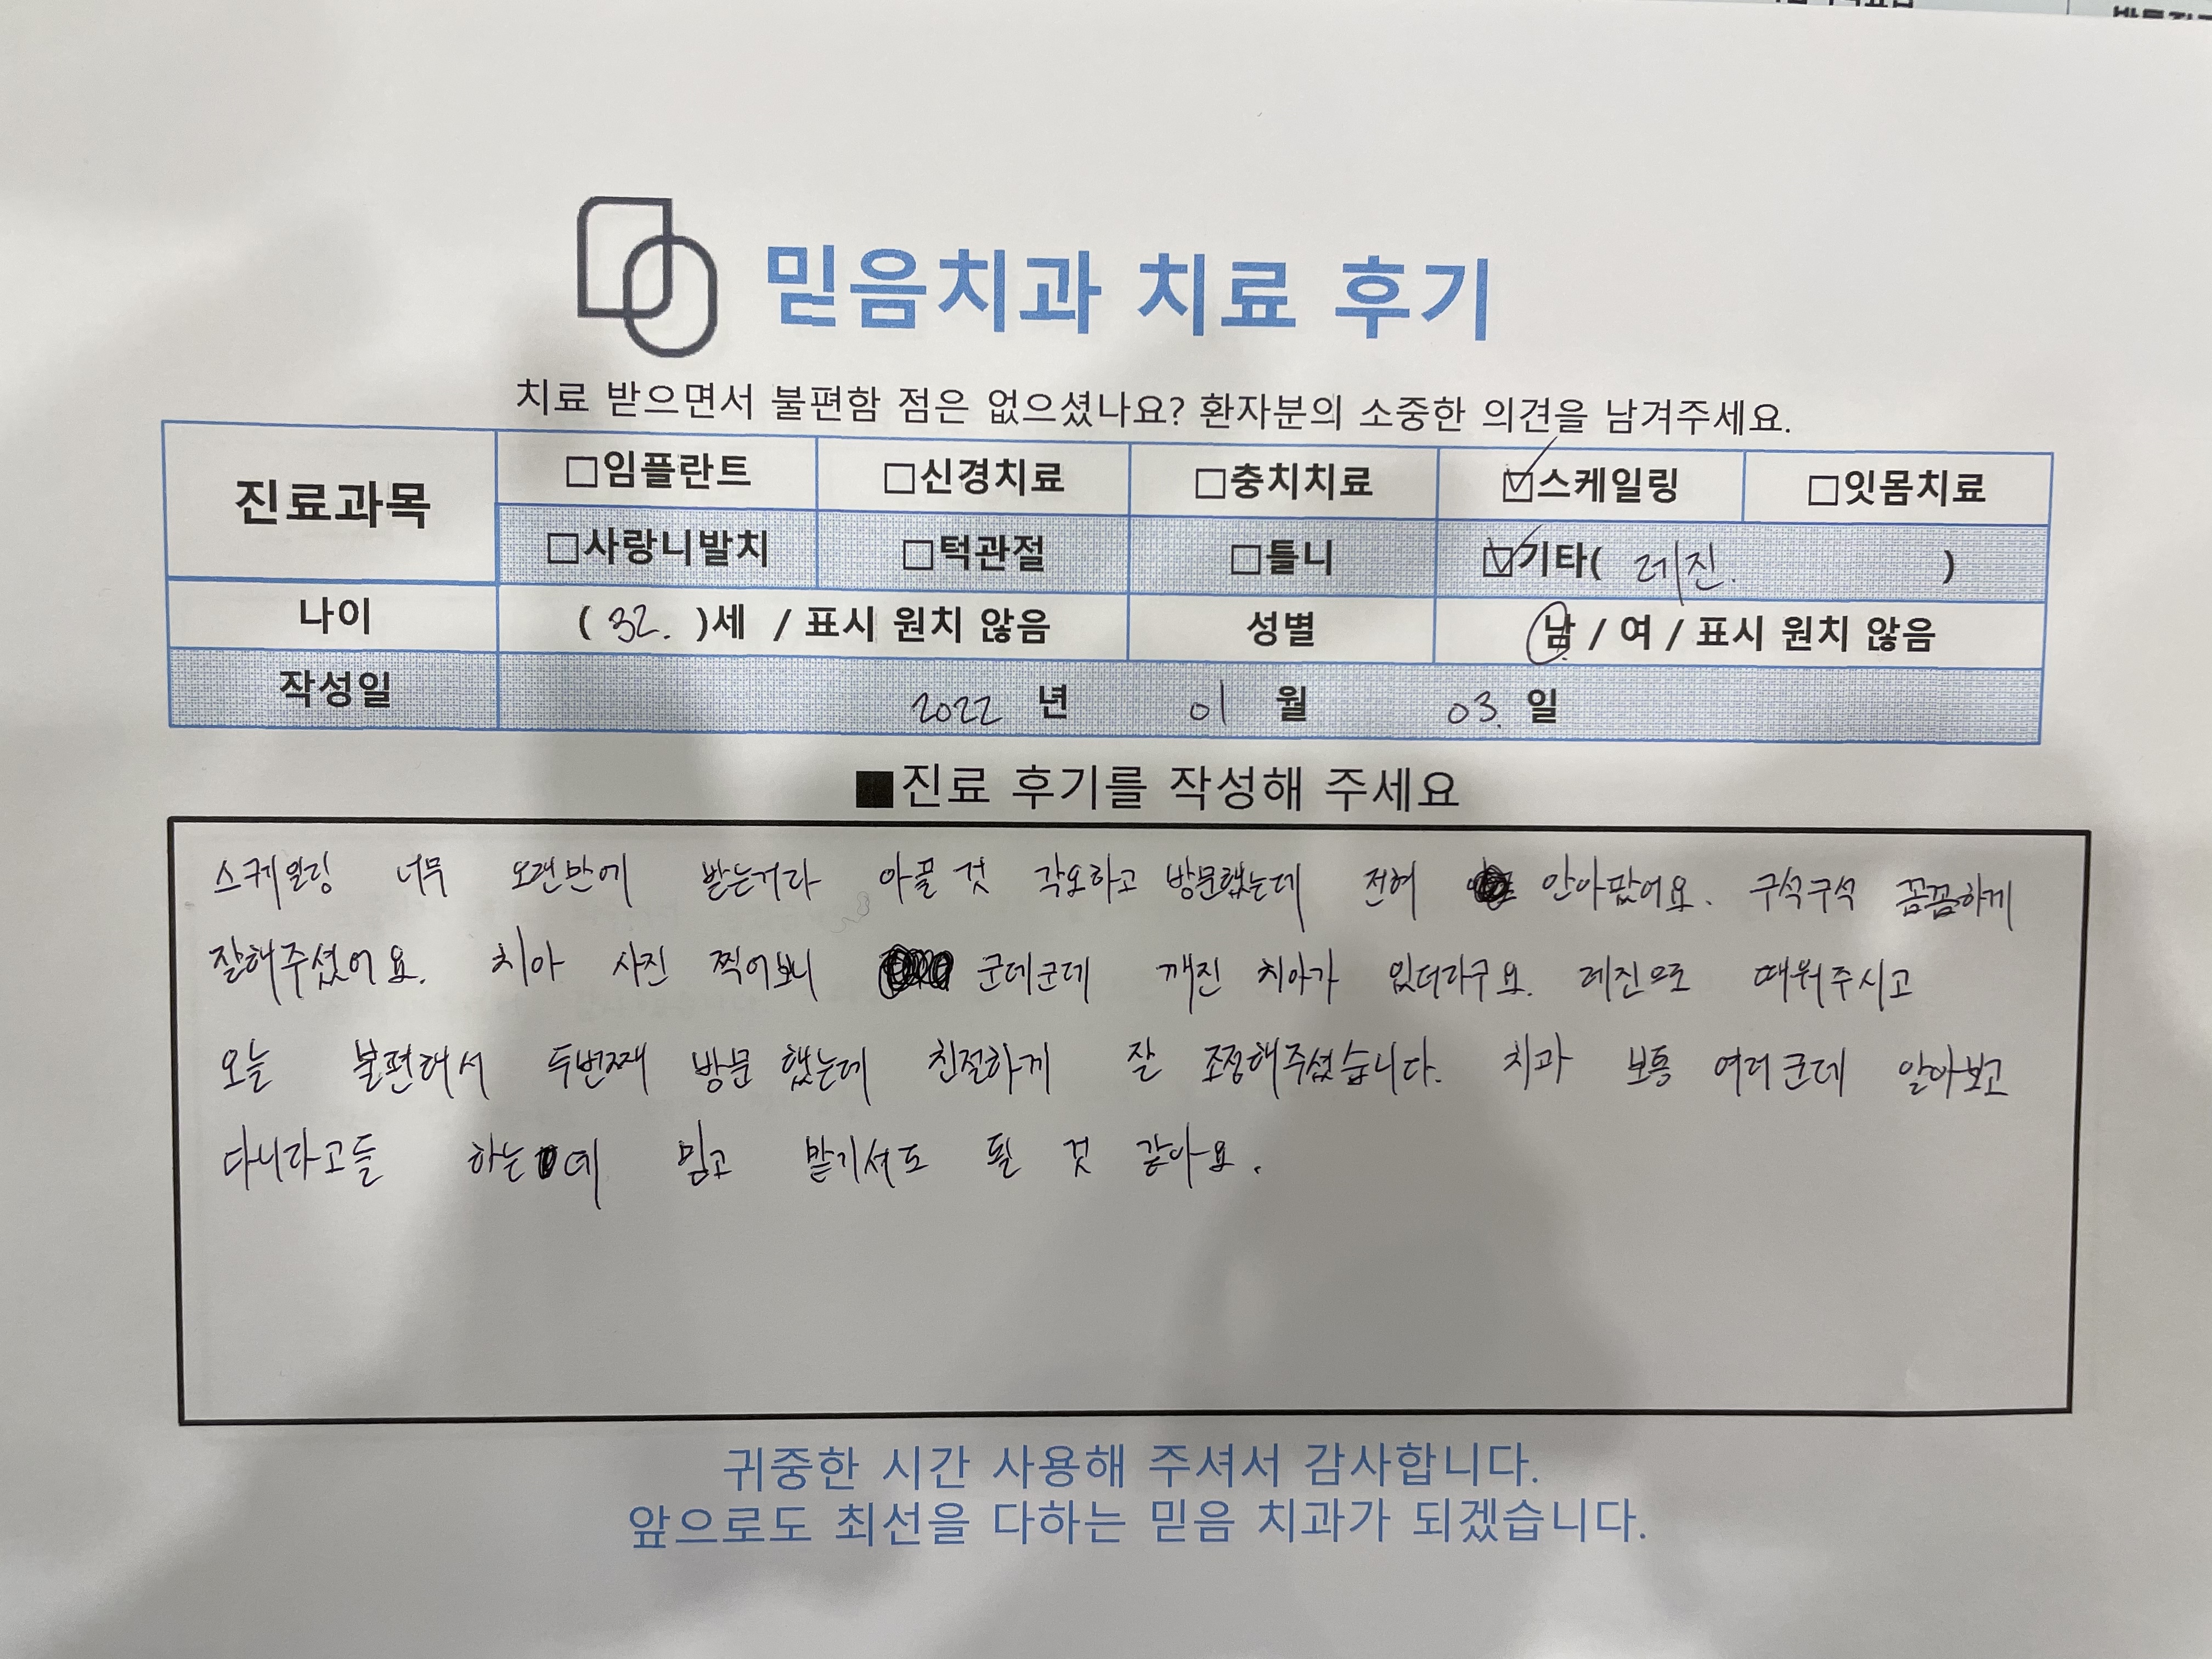 믿음치과 치료 후기
치료 받으면서 불편함 점은 없으셨나요? 환자분의 소중한 의견을 남겨주세요.
진료과목 □임플란트 □신경치료 □충치치료 ☑스케일링 □잇몸치료
□사랑니발치 □턱관절 □틀니 ☑기타( 레진. )
나이 ( 32. )세 / 표시 원치 않음 성별 남 / 여 / 표시 원치 않음
작성일 2022 년 01 월 03. 일
■진료 후기를 작성해 주세요
스케일링 너무 오랜만에 받는거라 아플 것 각오하고 방문했는데 전혀 안아팠어요. 구석구석 꼼꼼하게
잘해주셨어요. 치아 사진 찍어보니 군데군데 깨진 치아가 있더라구요. 레진으로 때워주시고
오늘 불편해서 두번째 방문 했는데 친절하게 잘 조정해주셨습니다. 치과 보통 여러군데 알아보고
다니라고들 하는데 믿고 맡기셔도 될 것 같아요.
귀중한 시간 사용해 주셔서 감사합니다.
앞으로도 최선을 다하는 믿음 치과가 되겠습니다.